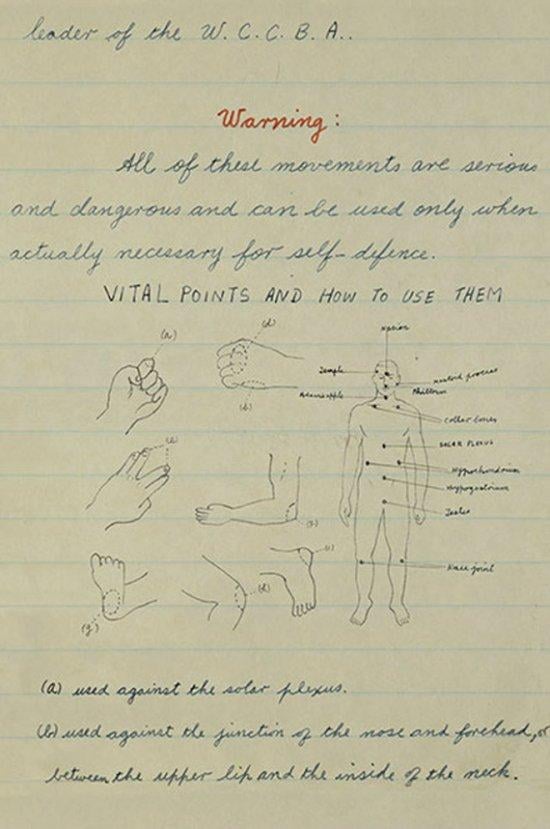 leader of the W.C.C.B.A..
Warning:
All of these movements are serious
and dangerous and can be used only when
actually necessary for self-defence.
VITAL POINTS AND HOW TO USE THEM
(a)
(d)
(b)
Nasion
Temple
Mastoid process
Philtrum
Collar bones
SOLAR PLEXUS
Hypochondrium
Hypogastrium
Testes
Knee joint
(g)
(a) used against the solar plexus.
(b) used against the junction of the nose and forehead, or
between the upper lip and the inside of the neck.